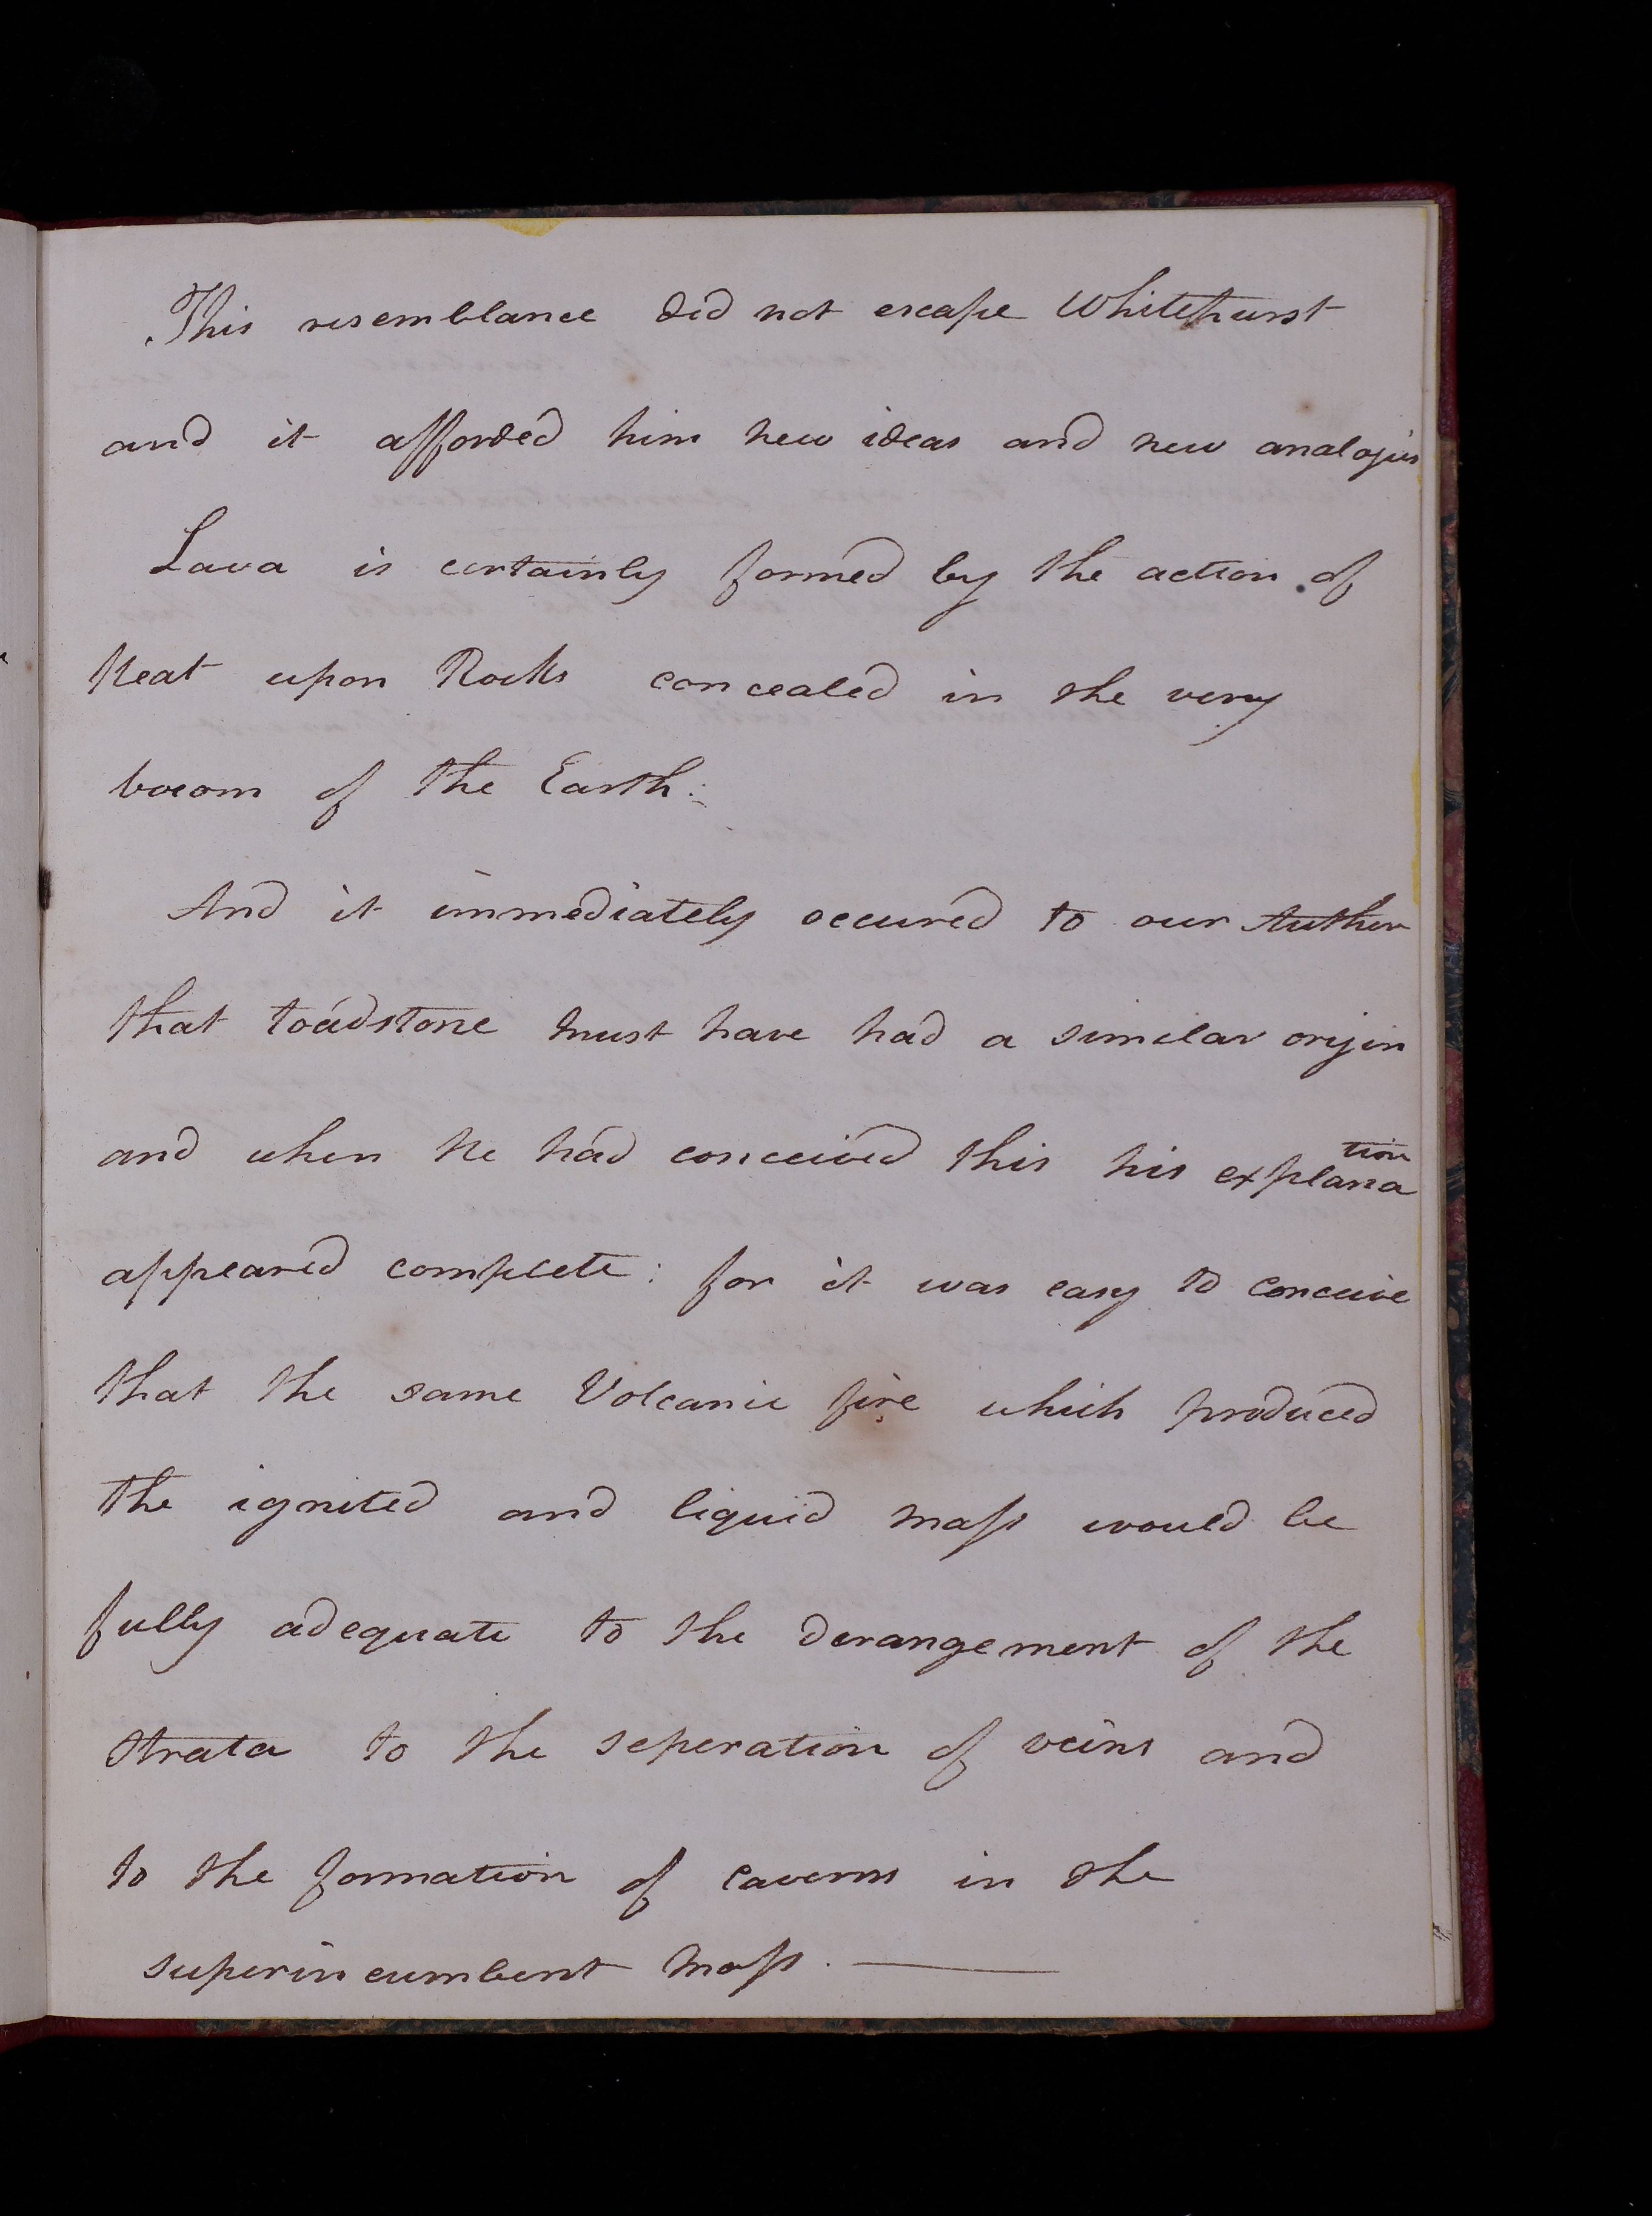 This resemblance did not escape Whitehurst
and it afforded him new ideas and new analogies
Lava is certainly formed by the action of
heat upon Rocks concealed in the very
bosom of the Earth:
And it immediately occured to our Author
that toadstone must have had a similar origin
and when he had conceived this his explanation
appeared complete: for it was easy to conceive
that the same Volcanic fire which produced
the ignited and liquid maſs would be
fully adequate to the derangement of the
strata to the seperation of veins and
to the formation of caverns in the
superincumbent maſs. —